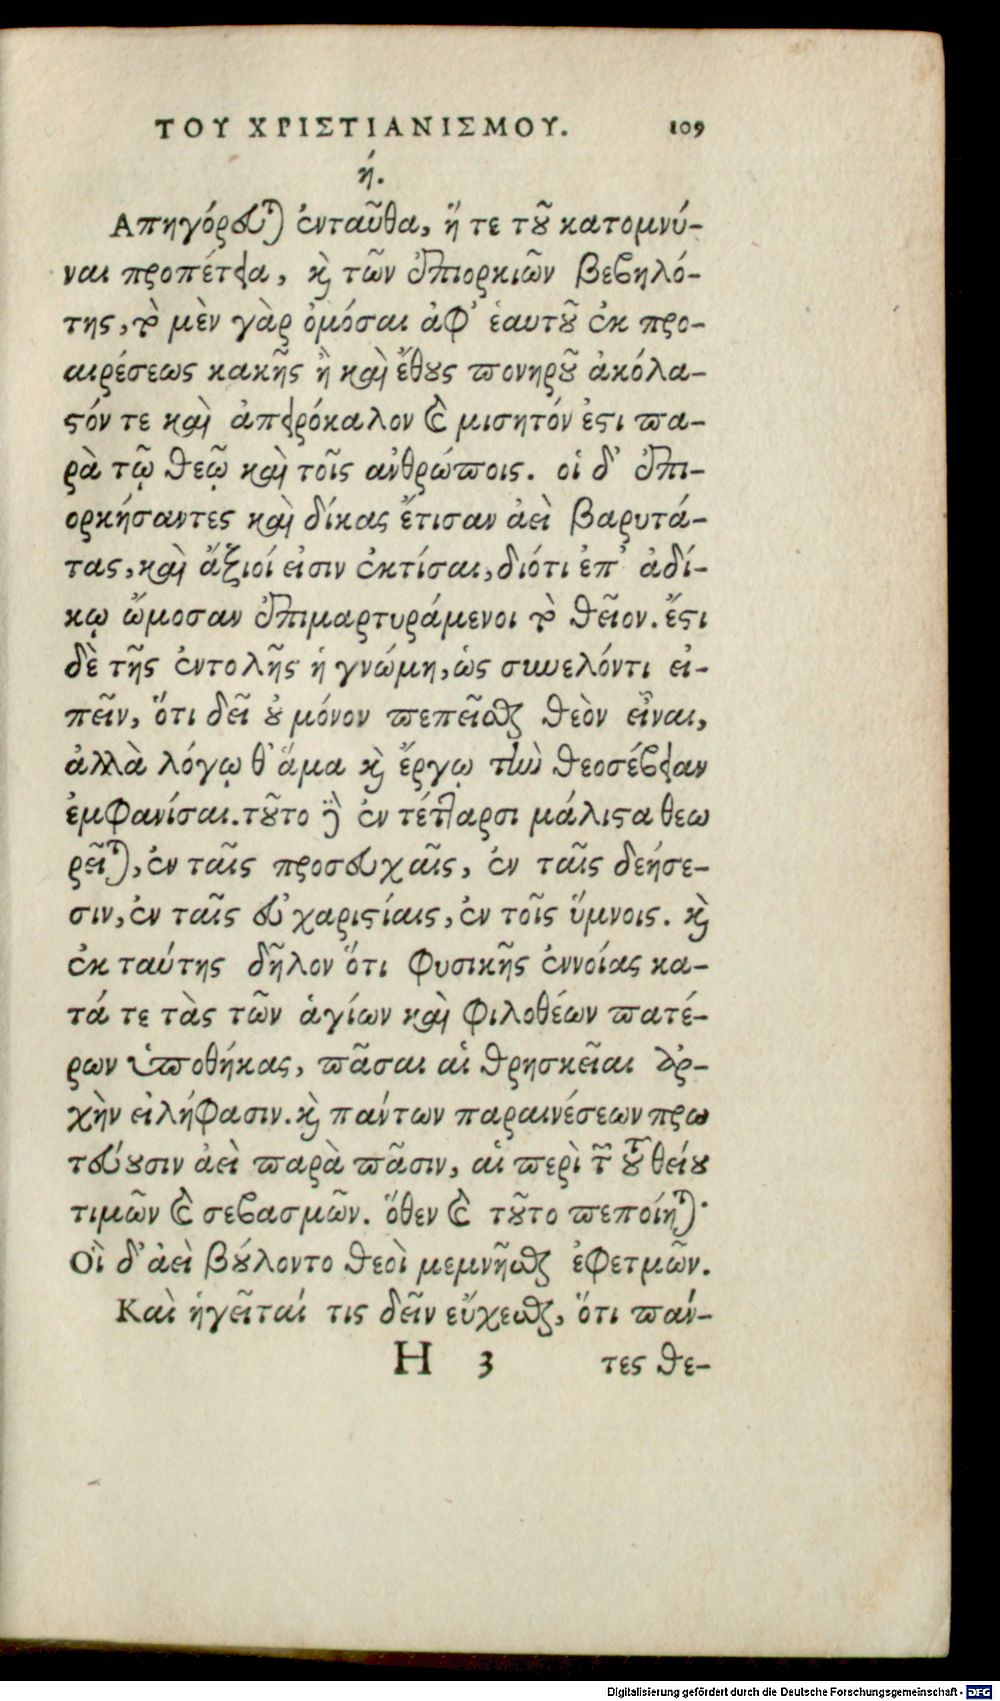 ΤΟΥ ΧΡΙΣΤΙΑΝΙΣΜΟΥ. 109
ή.
Απηγόρευται ἐνταῦθα, ἥ τε τοῦ κατομνύ-
ναι προπέτεια, καὶ τῶν ἐπιορκιῶν βεβηλό-
της, τὸ μὲν γὰρ ὀμόσαι ἀφ' ἑαυτοῦ ἐκ προ-
αιρέσεως κακῆς ἢ καὶ ἔθους πονηροῦ ἀκόλα-
στόν τε καὶ ἀπειρόκαλον καὶ μισητόν ἐστι πα-
ρὰ τῷ θεῷ καὶ τοῖς ἀνθρώποις. οἱ δ' ἐπι-
ορκήσαντες καὶ δίκας ἔτισαν ἀεὶ βαρυτά-
τας, καὶ ἄξιοί εἰσιν ἐκτίσαι, διότι ἐπ' ἀδί-
κῳ ὤμοσαν ἐπιμαρτυράμενοι τὸ θεῖον. ἔστι
δὲ τῆς ἐντολῆς ἡ γνώμη, ὡς συνελόντι εἰ-
πεῖν, ὅτι δεῖ οὐ μόνον πεπεῖσθαι θεὸν εἶναι,
ἀλλὰ λόγῳ θ' ἅμα καὶ ἔργῳ τὴν θεοσέβειαν
ἐμφανίσαι. τοῦτο δὲ ἐν τέτταρσι μάλιστα θεω
ρεῖται, ἐν ταῖς προσευχαῖς, ἐν ταῖς δεήσε-
σιν, ἐν ταῖς εὐχαριστίαις, ἐν τοῖς ὕμνοις. καὶ
ἐκ ταύτης δῆλον ὅτι φυσικῆς ἐννοίας κα-
τά τε τὰς τῶν ἁγίων καὶ φιλοθέων πατέ-
ρων ὑποθήκας, πᾶσαι αἱ θρησκεῖαι ἀρ-
χὴν εἰλήφασιν. καὶ πάντων παραινέσεων πρω
τεύουσιν ἀεὶ παρὰ πᾶσιν, αἱ περὶ τῶν τοῦ θείου
τιμῶν καὶ σεβασμῶν. ὅθεν καὶ τοῦτο πεποίηται·
Οἱ δ' ἀεὶ βούλοντο θεοὶ μεμνῆσθαι ἐφετμῶν.
Καὶ ἡγεῖταί τις δεῖν εὔχεσθαι, ὅτι πάν-
H 3 τες θε-
Digitalisierung gefördert durch die Deutsche Forschungsgemeinschaft - DFG